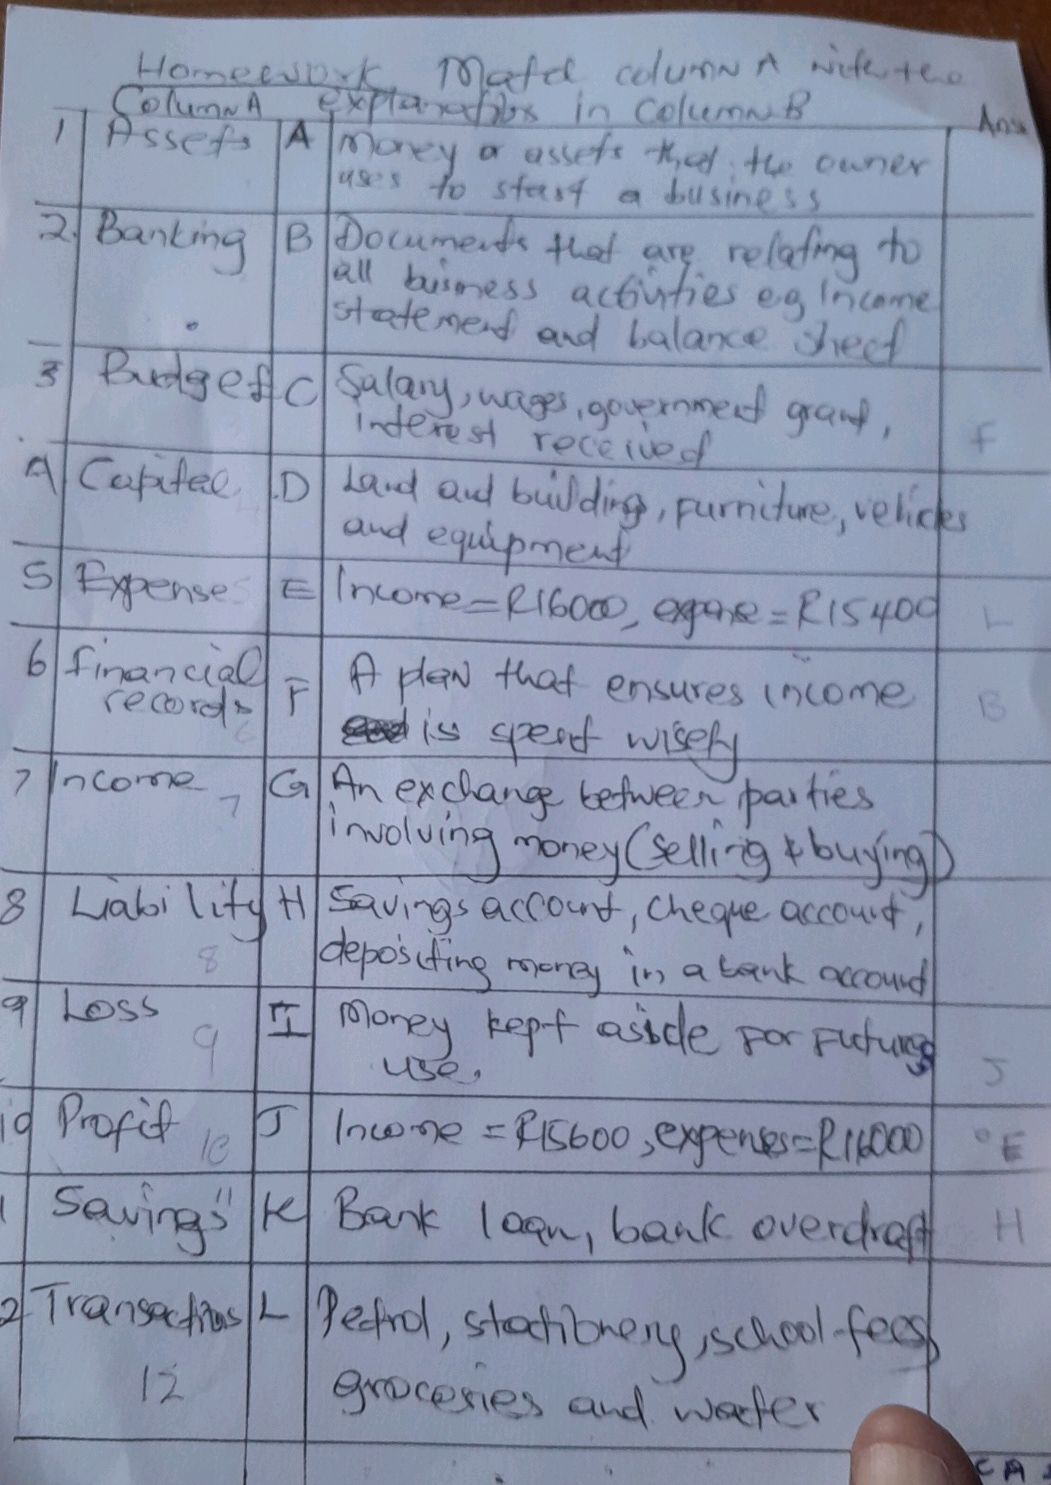 Homework Match column A with the
Column A explanations in Column B Ans
1 Assets A Money or assets that the owner
uses to start a business
2. Banking B Documents that are relating to
all business activities eg Income
statement and balance sheet
3 Budget C Salary, wages, government grant,
interest received F
4 Capital D Land and building, furniture, vehicles
and equipment
5 Expenses E Income = R16000, expense = R15400 L
6 financial F A plan that ensures income B
records is spent wisely
6
7 Income 7 G An exchange between parties
involving money (selling & buying)
8 Liability H Savings account, cheque account,
8 depositing money in a bank account
9 Loss I Money kept aside for future
9 use. J
10 Profit 10 J Income = R15600, expenses = R16000 E
1 Savings 11 K Bank loan, bank overdraft H
2 Transactions L Petrol, stationery, school fees
12 groceries and water
CA